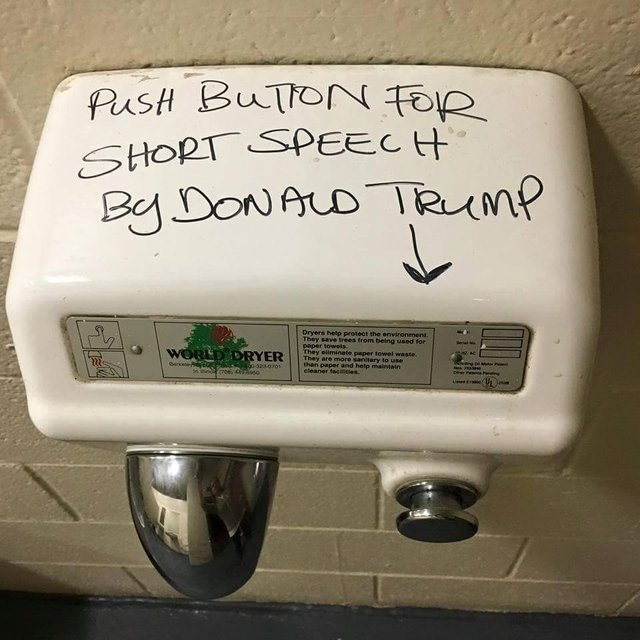 PUSH BUTTON FOR
SHORT SPEECH
By DONALD TRUMP
WORLD DRYER
Dryers help protect the environment.
They save trees from being used for
paper towels.
They eliminate paper towel waste.
They are more sanitary to use
than paper and help maintain
cleaner facilities.
Other Patents Pending
UL